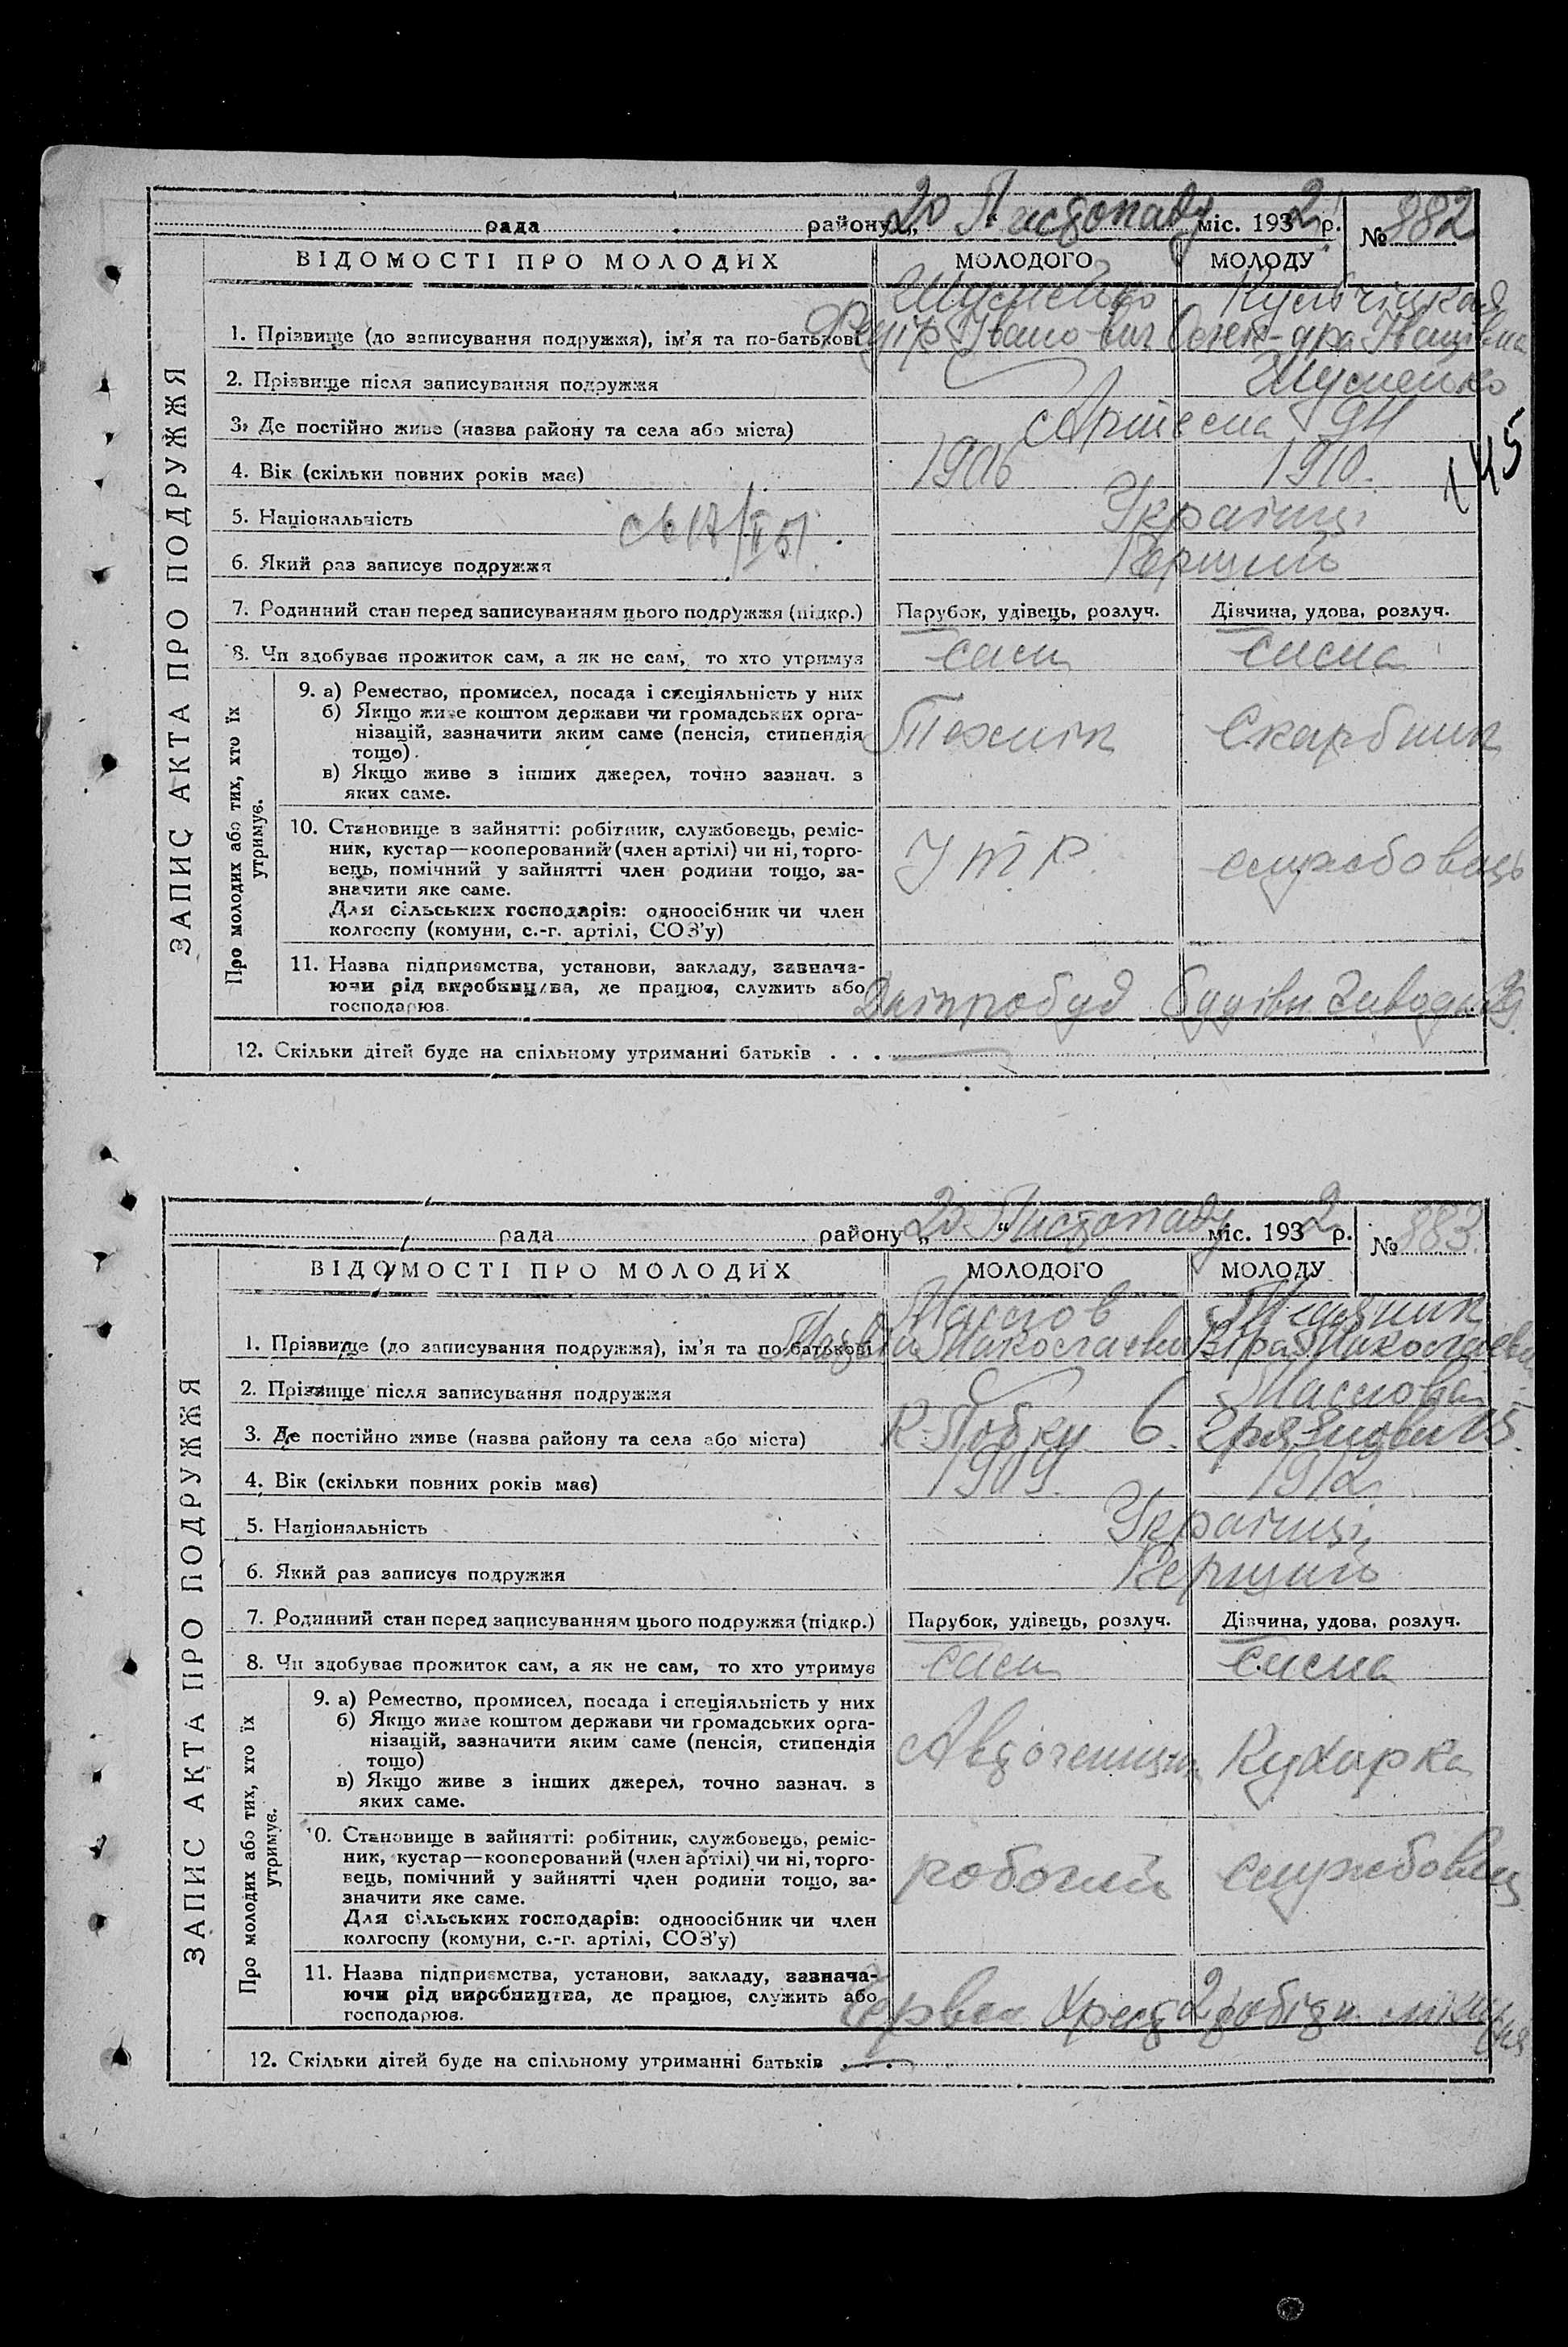 рада району „20“ Листопаду міс. 1932 р. № 882
ВІДОМОСТІ ПРО МОЛОДИХ МОЛОДОГО МОЛОДУ
ЗАПИС АКТА ПРО ПОДРУЖЖЯ
1. Прізвище (до записування подружжя), ім'я та по-батькові Івано-вич
2. Прізвище після записування подружжя
3. Де постійно живе (назва району та села або міста) Артема 94
145
4. Вік (скільки повних років має) 1906 1910.
5. Національність Українці
6. Який раз записує подружжя Перший
7. Родинний стан перед записуванням цього подружжя (підкр.) Парубок, удівець, розлуч. Дівчина, удова, розлуч.
8. Чи здобуває прожиток сам, а як не сам, то хто утримує сам сама
Про молодих або тих, хто їх утримує.
9. а) Ремество, промисел, посада і спеціяльність у них
б) Якщо живе коштом держави чи громадських орга-
нізацій, зазначити яким саме (пенсія, стипендія Технік Скарбник
тощо).
в) Якщо живе з інших джерел, точно зазнач. з
яких саме.
10. Становище в зайнятті: робітник, службовець, реміс-
ник, кустар—кооперований (член артілі) чи ні, торго-
вець, помічний у зайнятті член родини тощо, за- ІТР. службовець
значити яке саме.
Для сільських господарів: одноосібник чи член
колгоспу (комуни, с.-г. артілі, СОЗ'у)
11. Назва підприємства, установи, закладу, зазнача-
ючи рід виробництва, де працює, служить або Дніпробуд
господарює.
12. Скільки дітей буде на спільному утриманні батьків . . .
рада району „20“ Листопаду міс. 1932 р. № 883.
ВІДОМОСТІ ПРО МОЛОДИХ МОЛОДОГО МОЛОДУ
ЗАПИС АКТА ПРО ПОДРУЖЖЯ
Маслов
1. Прізвище (до записування подружжя), ім'я та по-батькові Віра
2. Прізвище після записування подружжя Маслова
3. Де постійно живе (назва району та села або міста)
4. Вік (скільки повних років має) 1909. 1912.
5. Національність Українці
6. Який раз записує подружжя Перший
7. Родинний стан перед записуванням цього подружжя (підкр.) Парубок, удівець, розлуч. Дівчина, удова, розлуч.
8. Чи здобуває прожиток сам, а як не сам, то хто утримує сам сама
Про молодих або тих, хто їх утримує.
9. а) Ремество, промисел, посада і спеціяльність у них
б) Якщо живе коштом держави чи громадських орга-
нізацій, зазначити яким саме (пенсія, стипендія
тощо) Кухарка
в) Якщо живе з інших джерел, точно зазнач. з
яких саме.
10. Становище в зайнятті: робітник, службовець, реміс-
ник, кустар—кооперований (член артілі) чи ні, торго-
вець, помічний у зайнятті член родини тощо, за- робочий службовець
значити яке саме.
Для сільських господарів: одноосібник чи член
колгоспу (комуни, с.-г. артілі, СОЗ'у)
11. Назва підприємства, установи, закладу, зазнача-
ючи рід виробництва, де працює, служить або Червон Хрест 2
господарює.
12. Скільки дітей буде на спільному утриманні батьків